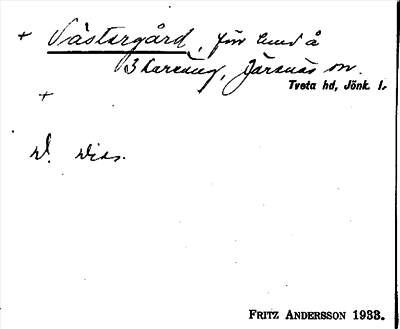 + Västergård, för hund å
Skareäng, Järsnäs sn.
Tveta hd, Jönk. l.
+
d. diss.
FRITZ ANDERSSON 1933.